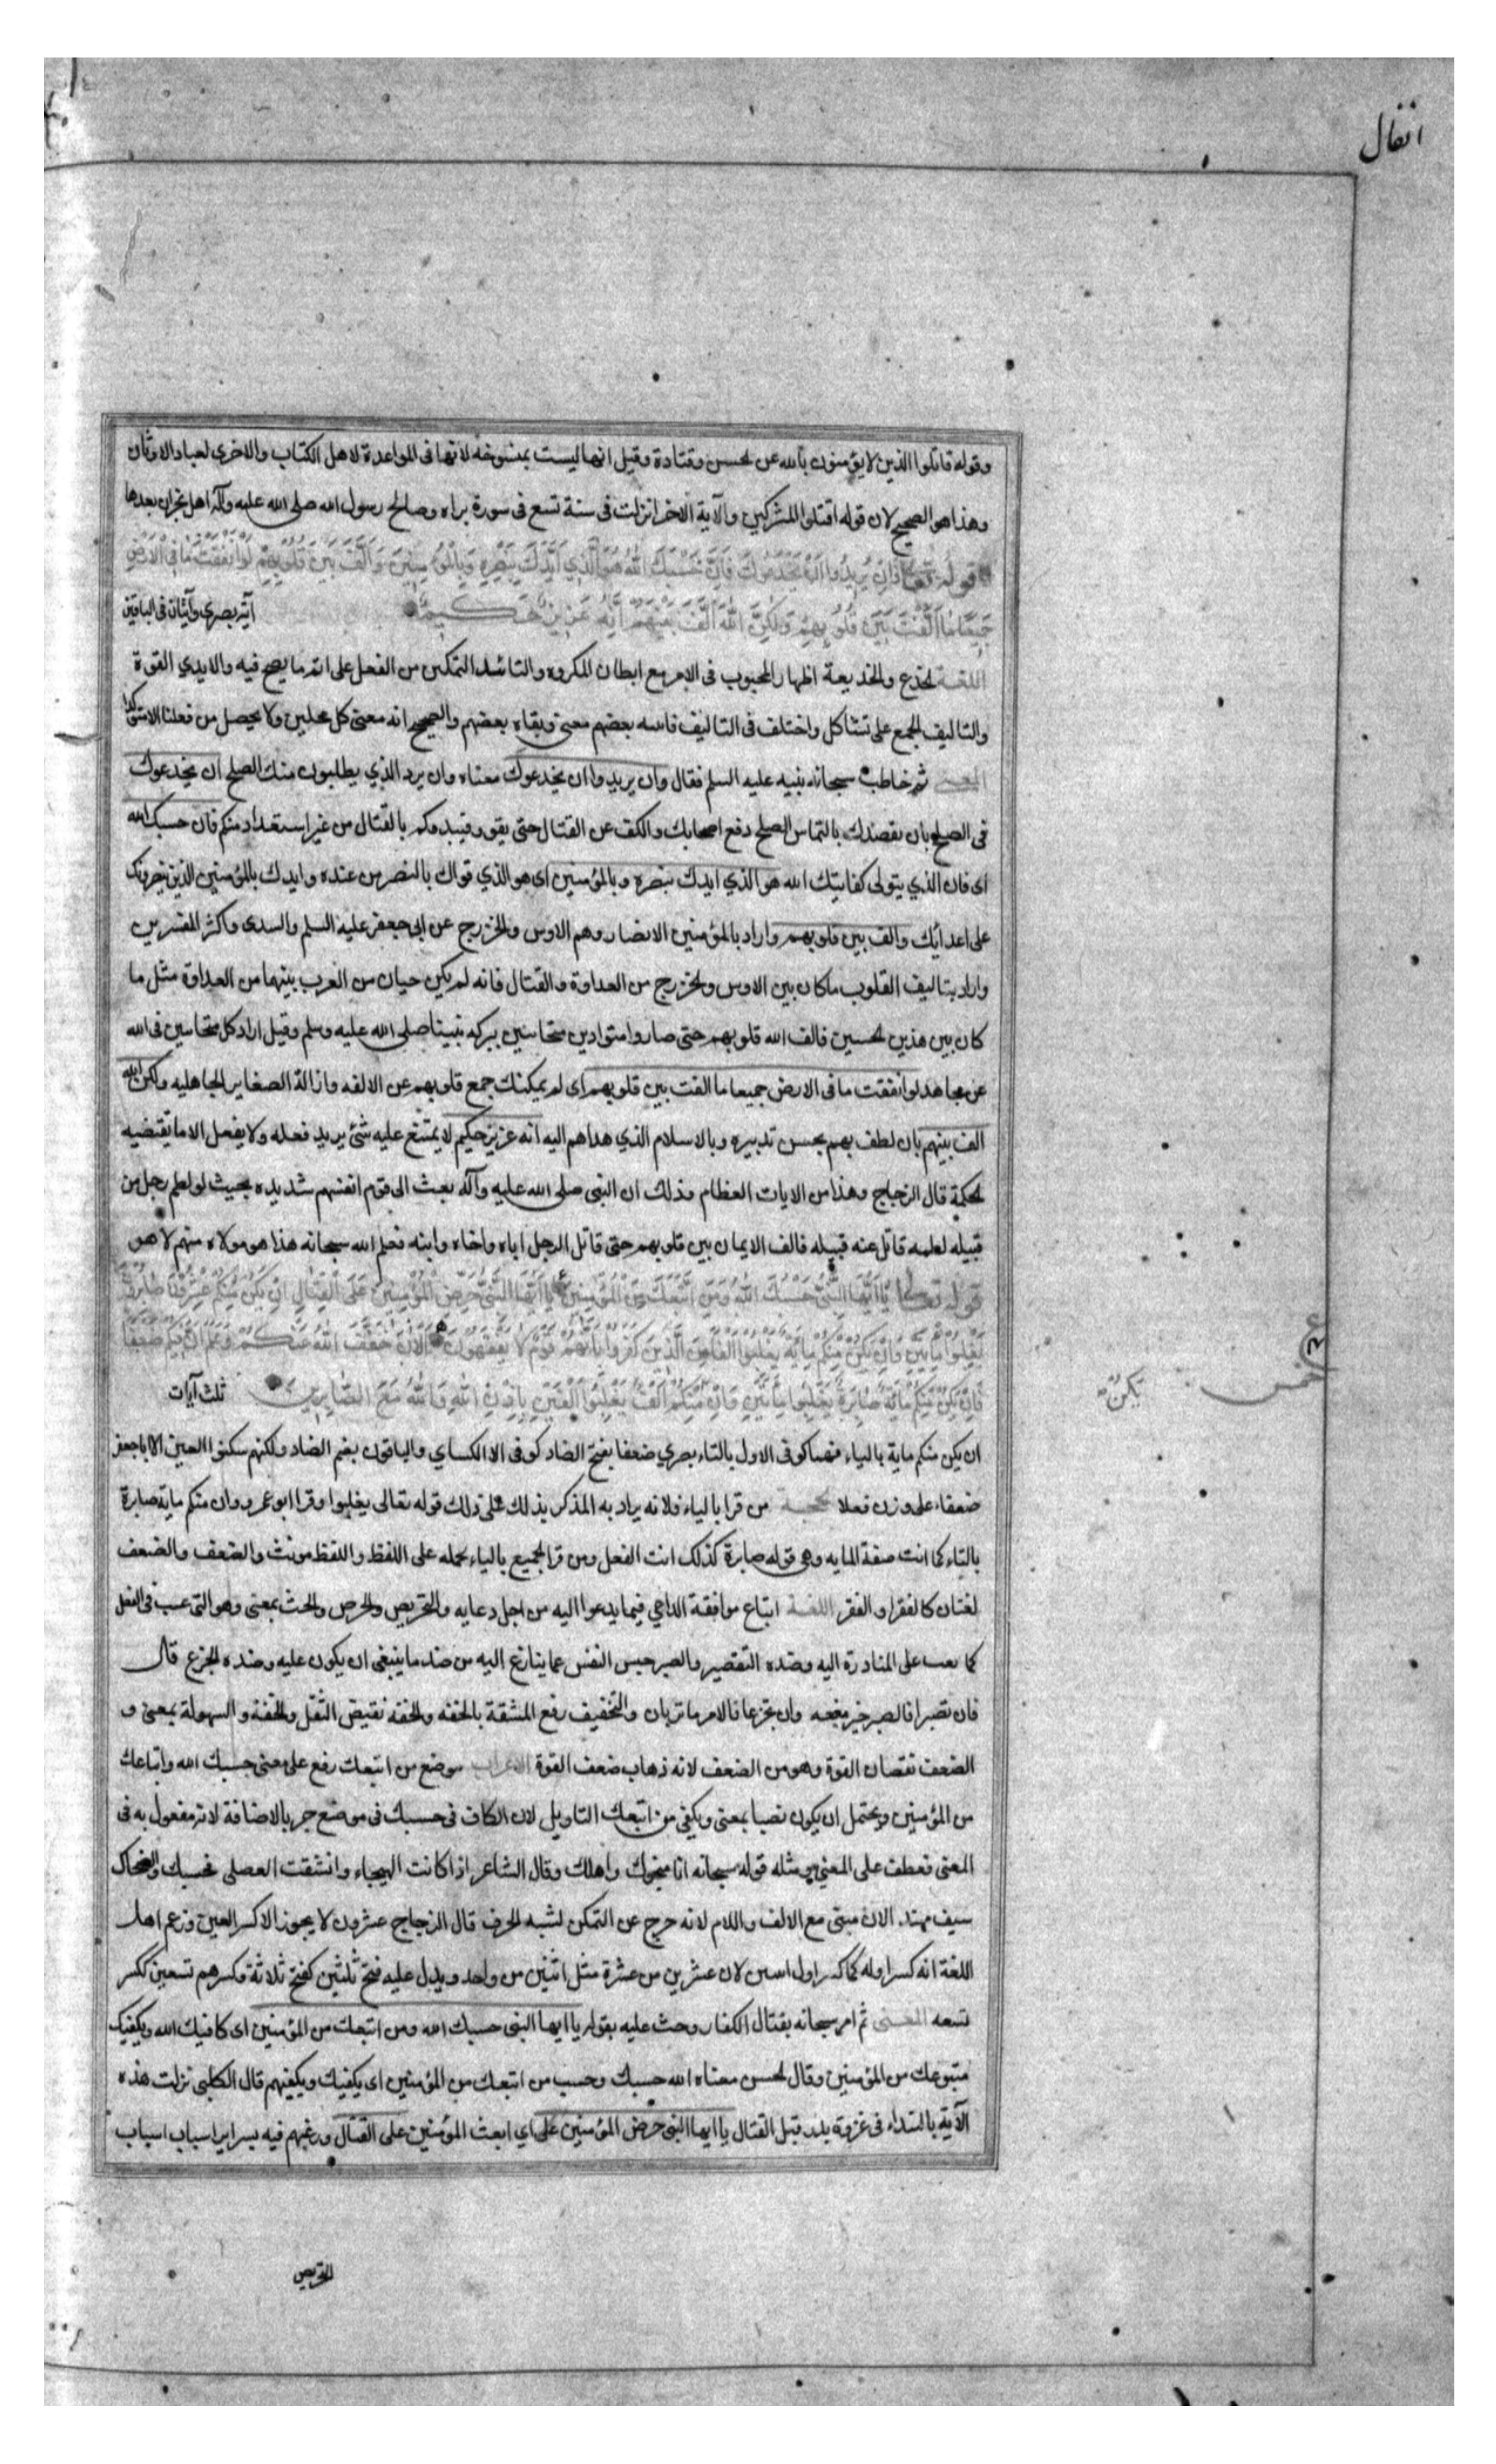 انفال
وقوله قاتلوا الذين لا يؤمنون بالله عن لحسن وقتادة وقيل انها ليست بمنسوخة لانها فى المواعدة لاهل الكتاب والاخرى لعباد الاوثان
وهذا هو الصحيح لان قوله اقتلوا المشركين والآية الاخرا نزلت فى سنة تسع فى سورة براه وصالح رسول الله صلى الله عليه وآله اهل نجران بعدها
قوله تعالى فَاِنْ يُرِيدُوا اَنْ يَخْدَعُوكَ فَاِنَّ حَسْبَكَ اللّٰهُ هُوَ الَّذِي اَيَّدَكَ بِنَصْرِهِ وَبِالْمُؤْمِنِينَ وَاَلَّفَ بَيْنَ قُلُوبِهِمْ لَوْ اَنْفَقْتَ مَا فِى الْاَرْضِ
جَمِيعًا مَا اَلَّفْتَ بَيْنَ قُلُوبِهِمْ وَلٰكِنَّ اللّٰهَ اَلَّفَ بَيْنَهُمْ اِنَّهُ عَزِيزٌ حَكِيمٌ آية بصرى وآيتان فى الباقين
اللغة لخدع والخديعة اظهار المحبوب فى الامر مع ابطان المكروه والتاشد التمكين من الفعل على اتم ما يصح فيه والايدي القوة
والتاليف الجمع على تشاكل واختلف فى التاليف فاسه بعضهم معنى وبقاه بعضهم والصحيح انه معنى كل محلين ولا يحصل من فعلنا الا متوكدا
المعنى ثم خاطب سبحانه نبيه عليه السلم فقال وان يريدوا ان يخدعوك معناه وان يرد الذي يطلبون منك الصلح ان يخدعوك
فى الصلح بان يقصدك بالتماس الصلح دفع اصحابك والكف عن القتال حتى يقوو فيبدوكم بالقتال من غير استعداد منكم فان حسبك الله
اى فان الذي يتولى كفايتك الله هو الذي ايدك بنصره وبالمؤمنين اى هو الذي قواك بالنصر من عنده وايدك بالمؤمنين الذين ينصرونك
على اعدائك والف بين قلوبهم واراد بالمؤمنين الانصار وهم الاوس والخزرج عن ابى جعفر عليه السلم والسدى واكثر المفسرين
واراد بتاليف القلوب ما كان بين الاوس ولخزرج من العداوة والقتال فانه لم يكن حيان من العرب بينهما من العداوة مثل ما
كان بين هذين لحسين فالف الله قلوبهم حتى صاروا متوادين متحابين ببركه نبينا صلى الله عليه وسلم وقيل اراد كل متحابين فى الله
عن مجاهد لو انفقت ما فى الارض جميعا ما الفت بين قلوبهم اى لم يمكنك جمع قلوبهم عن الالفه وازالة الصغاير الجاهليه ولكن الله
الف بينهم بان لطف بهم بحسن تدبيره وبالاسلام الذي هداهم اليه انه عزيز حكيم لا يمتنع عليه شئ يريد فعله ولا يفعل الا ما تقتضيه
لحكمة قال الزجاج وهذا من الايات العظام وذلك ان النبى صلى الله عليه وآله بعث الى قوم انفتهم شديده بحيث لو لطم رجل من
قبيله لطمه قاتل عنه قبيله فالف الايمان بين قلوبهم حتى قاتل الرجل اباه واخاه وابنه فعلم الله سبحانه هذا هو مولاه منهم لا هو
قوله تعالى يَا اَيُّهَا النَّبِىُّ حَسْبُكَ اللّٰهُ وَمَنِ اتَّبَعَكَ مِنَ الْمُؤْمِنِينَ يَا اَيُّهَا النَّبِىُّ حَرِّضِ الْمُؤْمِنِينَ عَلَى الْقِتَالِ اِنْ يَكُنْ مِنْكُمْ عِشْرُونَ صَابِرُونَ
يَغْلِبُوا مِائَتَيْنِ وَاِنْ تَكُنْ مِنْكُمْ مِايَةٌ يَغْلِبُوا اَلْفًا مِنَ الَّذِينَ كَفَرُوا بِاَنَّهُمْ قَوْمٌ لَا يَفْقَهُونَ اَلْآنَ خَفَّفَ اللّٰهُ عَنْكُمْ وَعَلِمَ اَنَّ فِيكُمْ ضَعْفًا
فَاِنْ يَكُنْ مِنْكُمْ مِايَةٌ صَابِرَةٌ يَغْلِبُوا مِايَتَيْنِ وَاِنْ يَكُنْ مِنْكُمْ اَلْفٌ يَغْلِبُوا اَلْفَيْنِ بِاِذْنِ اللّٰهِ وَاللّٰهُ مَعَ الصَّابِرِينَ ثلث آيات
خمس
تكن
ان يكن منكم ماية بالياء فيهما كوفى الاول بالتاء بصري ضعفا بفتح الضاد كوفى الا الكساي والباقون بضم الضاد ولكنهم سكنوا العين الا ابا جعفر
ضعفاء على وزن فعلا لحجة من قرا بالياء فلانه يراد به المذكر يذلك على ذلك قوله تعالى يغلبوا وقرا ابو عمرو وان منكم ماية صابرة
بالتاء كما انت صفة المايه وهى قوله صابرة كذلك انت الفعل ومن قرا لجميع بالياء حمله على اللفظ واللفظ مونث والضعف والضعف
لغتان كالفقر او الفقر اللغة اتباع موافقة الداعي فيما يدعوا اليه من اجل دعايه والتحريض والحرص والحث بمعنى وهو الترغيب فى الفعل
كما بعث على المبادرة اليه وضده التقصير والصبر حبس النفس عما ينازع اليه من ضد ما ينبغى ان يكون عليه وضده لجزع قال
فان تصبرا فالصبر خير مغبه وان تجزعا فالامر ما تريان والتخفيف رفع المشقة بالخفه والخفه نقيض الثقل والخفة والسهولة بمعنى و
الضعف نقصان القوة وهو من الضعف لانه ذهاب ضعف القوة الاعراب موضع من اتبعك رفع على معنى حسبك الله واتباعك
من المؤمنين ويحتمل ان يكون نصبا بمعنى ويكفى من اتبعك التاويل لان الكاف فى حسبك فى موضع جر بالاضافة لانه مفعول به فى
المعنى فعطف على المعنى ومثله قوله سبحانه انا منجوك واهلك وقال الشاعر اذا كانت الهيجاء وانشقت العصى فحسبك والضحاك
سيف مهند الان مبنى مع الالف واللام لانه خرج عن التمكن لشبه الحرف قال الزجاج عشرون لا يجوز الا كسر العين وزعم اهل
اللغة انه كسر اوله كما كسر اول اسين لان عشرين من عشرة مثل اثنين من واحد ويدل عليه فتح ثلثين كفتح ثلاثة وكسرهم تسعين ككسر
تسعه المعنى ثم امر سبحانه بقتال الكفار وحث عليه بقوله يا ايها النبى حسبك الله ومن اتبعك من المؤمنين اى كافيك الله ويكفيك
متبوعك من المؤمنين وقال لحسن معناه الله حسبك وحسب من اتبعك من المؤمنين اى يكفيك ويكفيهم قال الكلبى نزلت هذه
الآية بالبتداء فى غزوة بدر قبل القتال يا ايها النبى حرض المؤمنين على اي ابعث المؤمنين على القتال ورغبهم فيه بسراير اسباب اسباب
التحريض